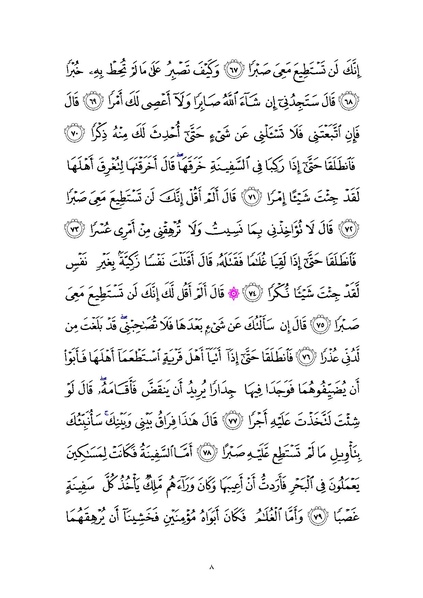 إِنَّكَ لَن تَسْتَطِيعَ مَعِى صَبْرًا ٦٧ وَكَيْفَ تَصْبِرُ عَلَىٰ مَا لَمْ تُحِطْ بِهِۦ خُبْرًا
٦٨ قَالَ سَتَجِدُنِىٓ إِن شَآءَ ٱللَّهُ صَابِرًا وَلَآ أَعْصِى لَكَ أَمْرًا ٦٩ قَالَ
فَإِنِ ٱتَّبَعْتَنِى فَلَا تَسْـَٔلْنِى عَن شَىْءٍ حَتَّىٰٓ أُحْدِثَ لَكَ مِنْهُ ذِكْرًا ٧٠
فَٱنطَلَقَا حَتَّىٰٓ إِذَا رَكِبَا فِى ٱلسَّفِينَةِ خَرَقَهَا ۖ قَالَ أَخَرَقْتَهَا لِتُغْرِقَ أَهْلَهَا
لَقَدْ جِئْتَ شَيْـًٔا إِمْرًا ٧١ قَالَ أَلَمْ أَقُلْ إِنَّكَ لَن تَسْتَطِيعَ مَعِى صَبْرًا
٧٢ قَالَ لَا تُؤَاخِذْنِى بِمَا نَسِيتُ وَلَا تُرْهِقْنِى مِنْ أَمْرِى عُسْرًا ٧٣
فَٱنطَلَقَا حَتَّىٰٓ إِذَا لَقِيَا غُلَـٰمًا فَقَتَلَهُۥ قَالَ أَقَتَلْتَ نَفْسًا زَكِيَّةًۢ بِغَيْرِ نَفْسٍ
لَّقَدْ جِئْتَ شَيْـًٔا نُّكْرًا ٧٤ ۞ قَالَ أَلَمْ أَقُل لَّكَ إِنَّكَ لَن تَسْتَطِيعَ مَعِىَ
صَبْرًا ٧٥ قَالَ إِن سَأَلْتُكَ عَن شَىْءٍۭ بَعْدَهَا فَلَا تُصَـٰحِبْنِى ۖ قَدْ بَلَغْتَ مِن
لَّدُنِّى عُذْرًا ٧٦ فَٱنطَلَقَا حَتَّىٰٓ إِذَآ أَتَيَآ أَهْلَ قَرْيَةٍ ٱسْتَطْعَمَآ أَهْلَهَا فَأَبَوْا۟
أَن يُضَيِّفُوهُمَا فَوَجَدَا فِيهَا جِدَارًا يُرِيدُ أَن يَنقَضَّ فَأَقَامَهُۥ ۖ قَالَ لَوْ
شِئْتَ لَتَّخَذْتَ عَلَيْهِ أَجْرًا ٧٧ قَالَ هَـٰذَا فِرَاقُ بَيْنِى وَبَيْنِكَ ۚ سَأُنَبِّئُكَ
بِتَأْوِيلِ مَا لَمْ تَسْتَطِع عَّلَيْهِ صَبْرًا ٧٨ أَمَّا ٱلسَّفِينَةُ فَكَانَتْ لِمَسَـٰكِينَ
يَعْمَلُونَ فِى ٱلْبَحْرِ فَأَرَدتُّ أَنْ أَعِيبَهَا وَكَانَ وَرَآءَهُم مَّلِكٌ يَأْخُذُ كُلَّ سَفِينَةٍ
غَصْبًا ٧٩ وَأَمَّا ٱلْغُلَـٰمُ فَكَانَ أَبَوَاهُ مُؤْمِنَيْنِ فَخَشِينَآ أَن يُرْهِقَهُمَا
٨